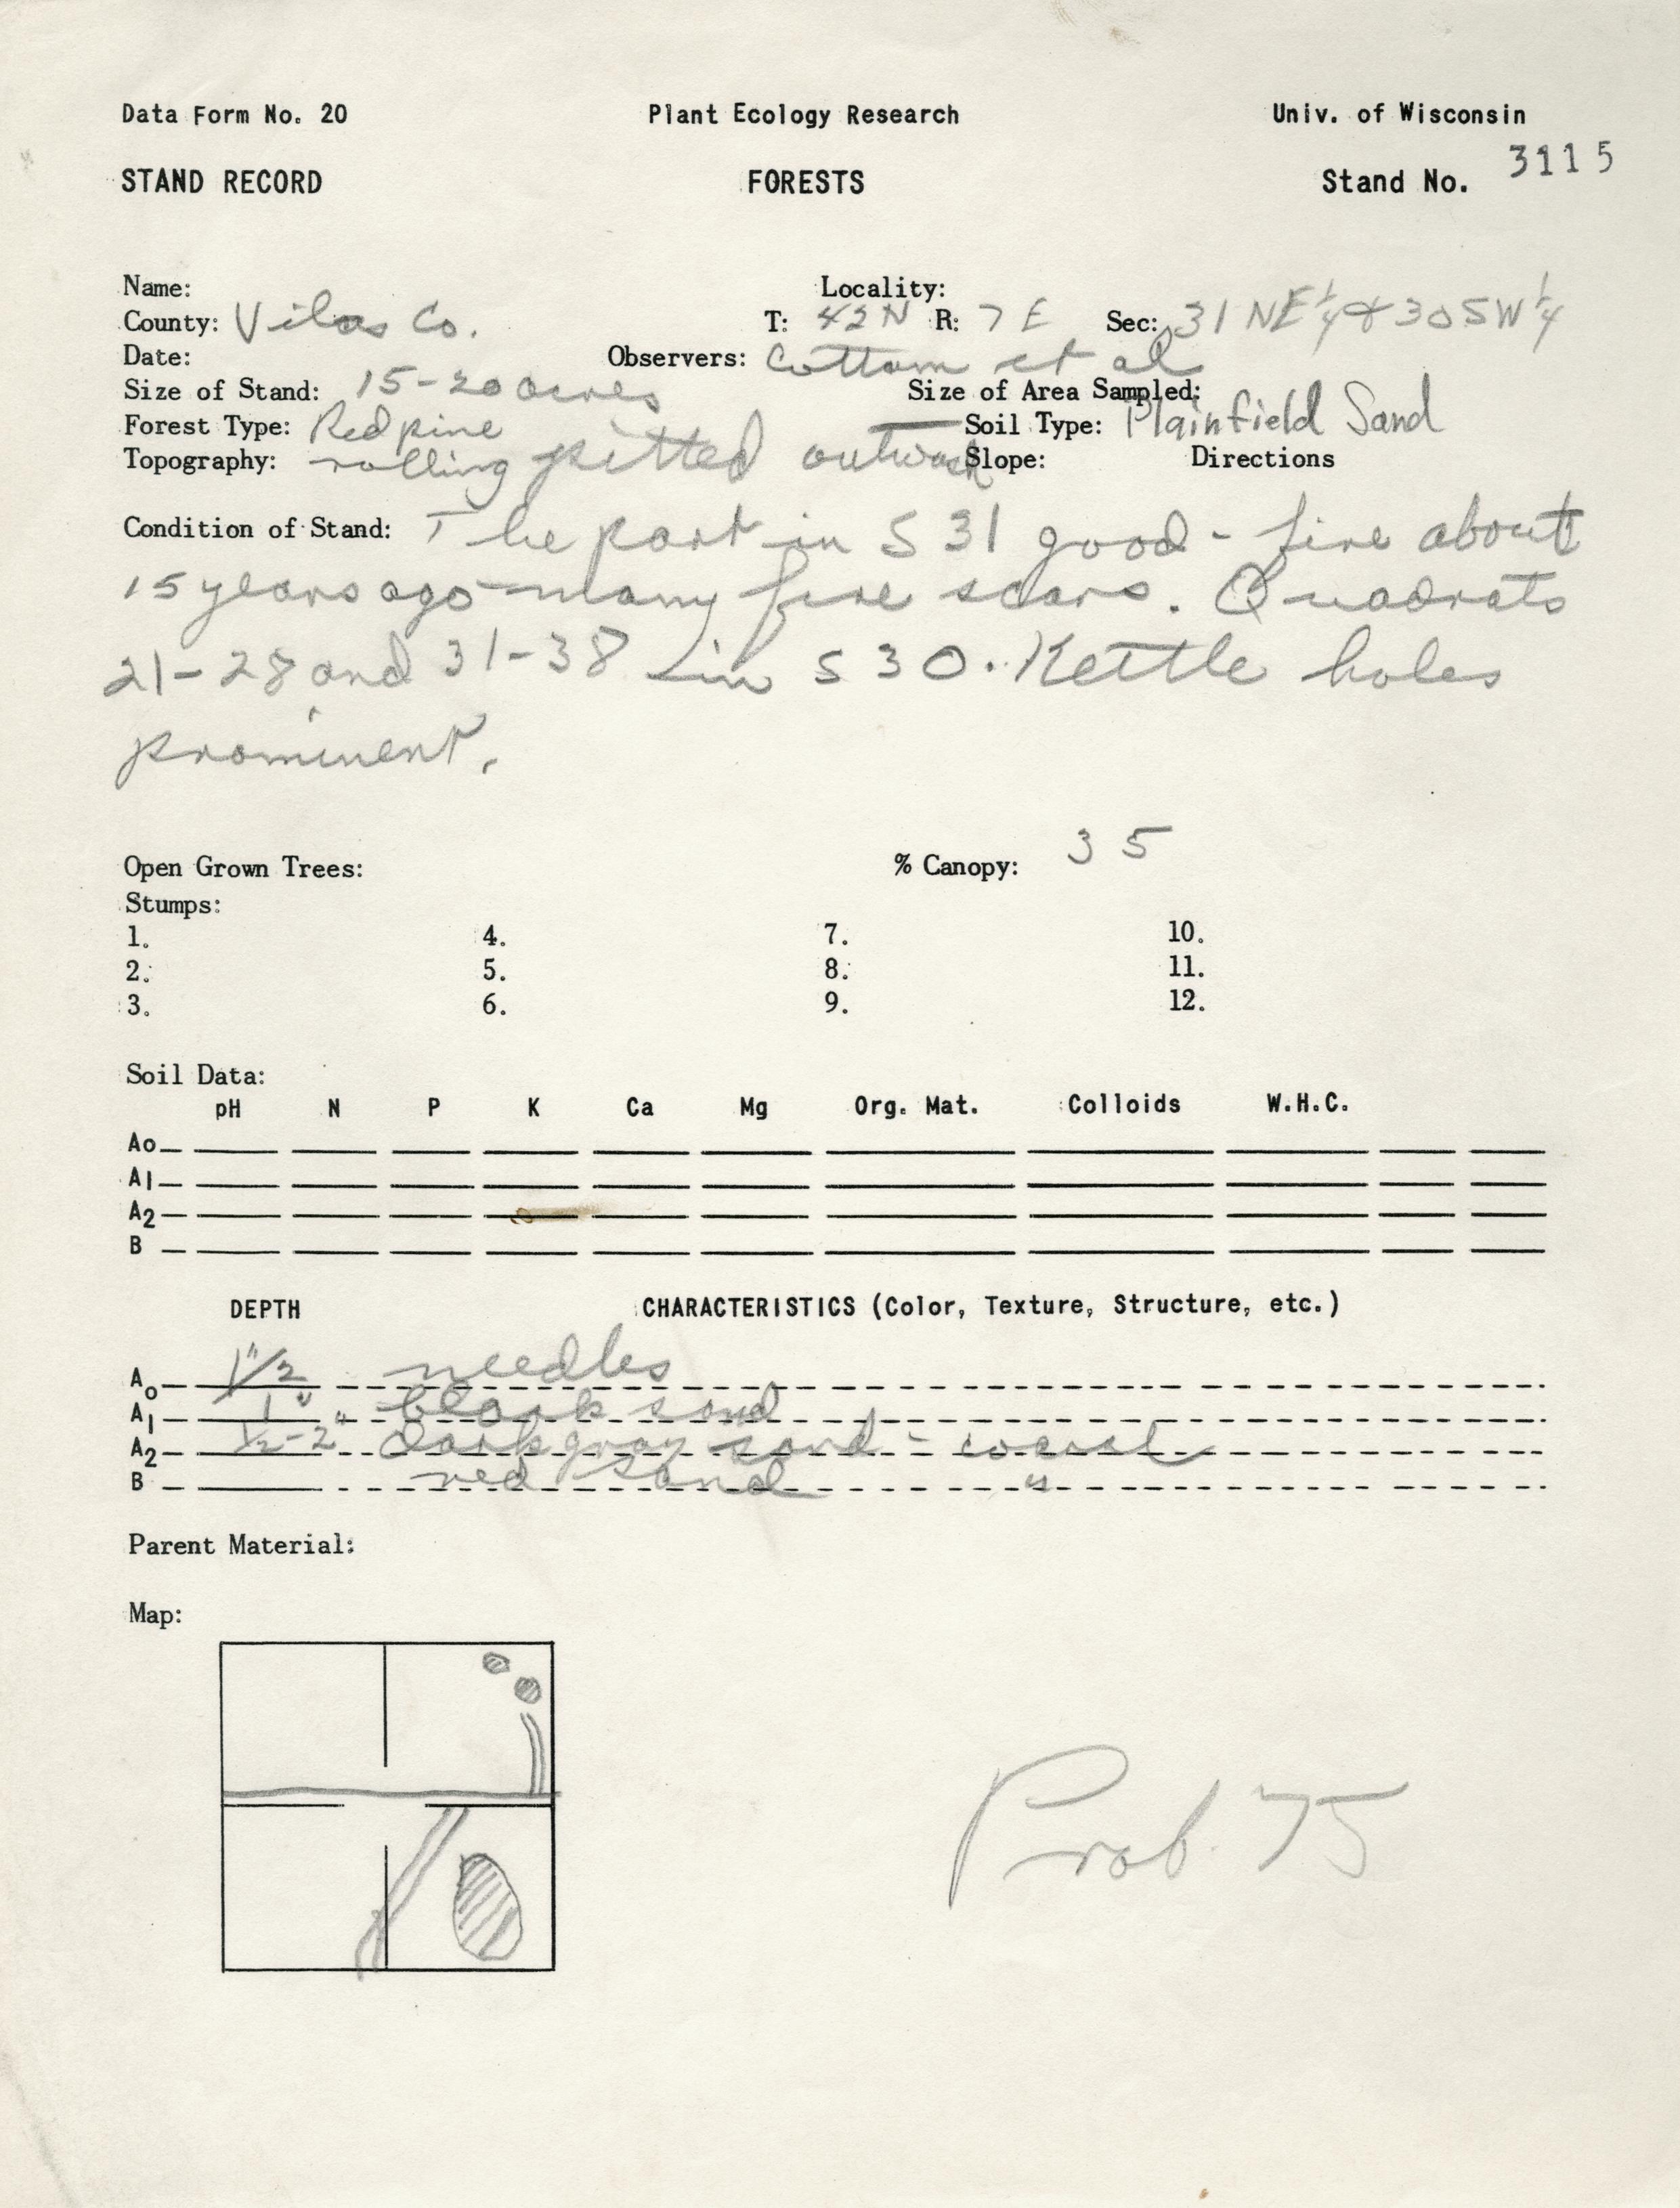 Data Form No. 20 Plant Ecology Research Univ. of Wisconsin
STAND RECORD FORESTS Stand No. 3115
Name: Locality:
County: Vilas Co. T: 42N R: 7E Sec: 31 NE 1/4 & 30 SW 1/4
Date: Observers: Cottam et al
Size of Stand: 15-20 acres Size of Area Sampled:
Forest Type: Red pine Soil Type: Plainfield Sand
Topography: rolling pitted outwash Slope: Directions
Condition of Stand: The part in S 31 good - fire about
15 years ago - many fire scars. Quadrats
21-28 and 31-38 in S 30. Kettle holes
prominent.
Open Grown Trees: % Canopy: 35
Stumps:
1. 4. 7. 10.
2. 5. 8. 11.
3. 6. 9. 12.
Soil Data:
pH N P K Ca Mg Org. Mat. Colloids W.H.C.
Ao
A1
A2
B
DEPTH CHARACTERISTICS (Color, Texture, Structure, etc.)
Ao 1"/2 needles
A1 1" black sand
A2 1/2-2" dark gray sand - coarse
B red sand "
Parent Material:
Map:
Prob. 75